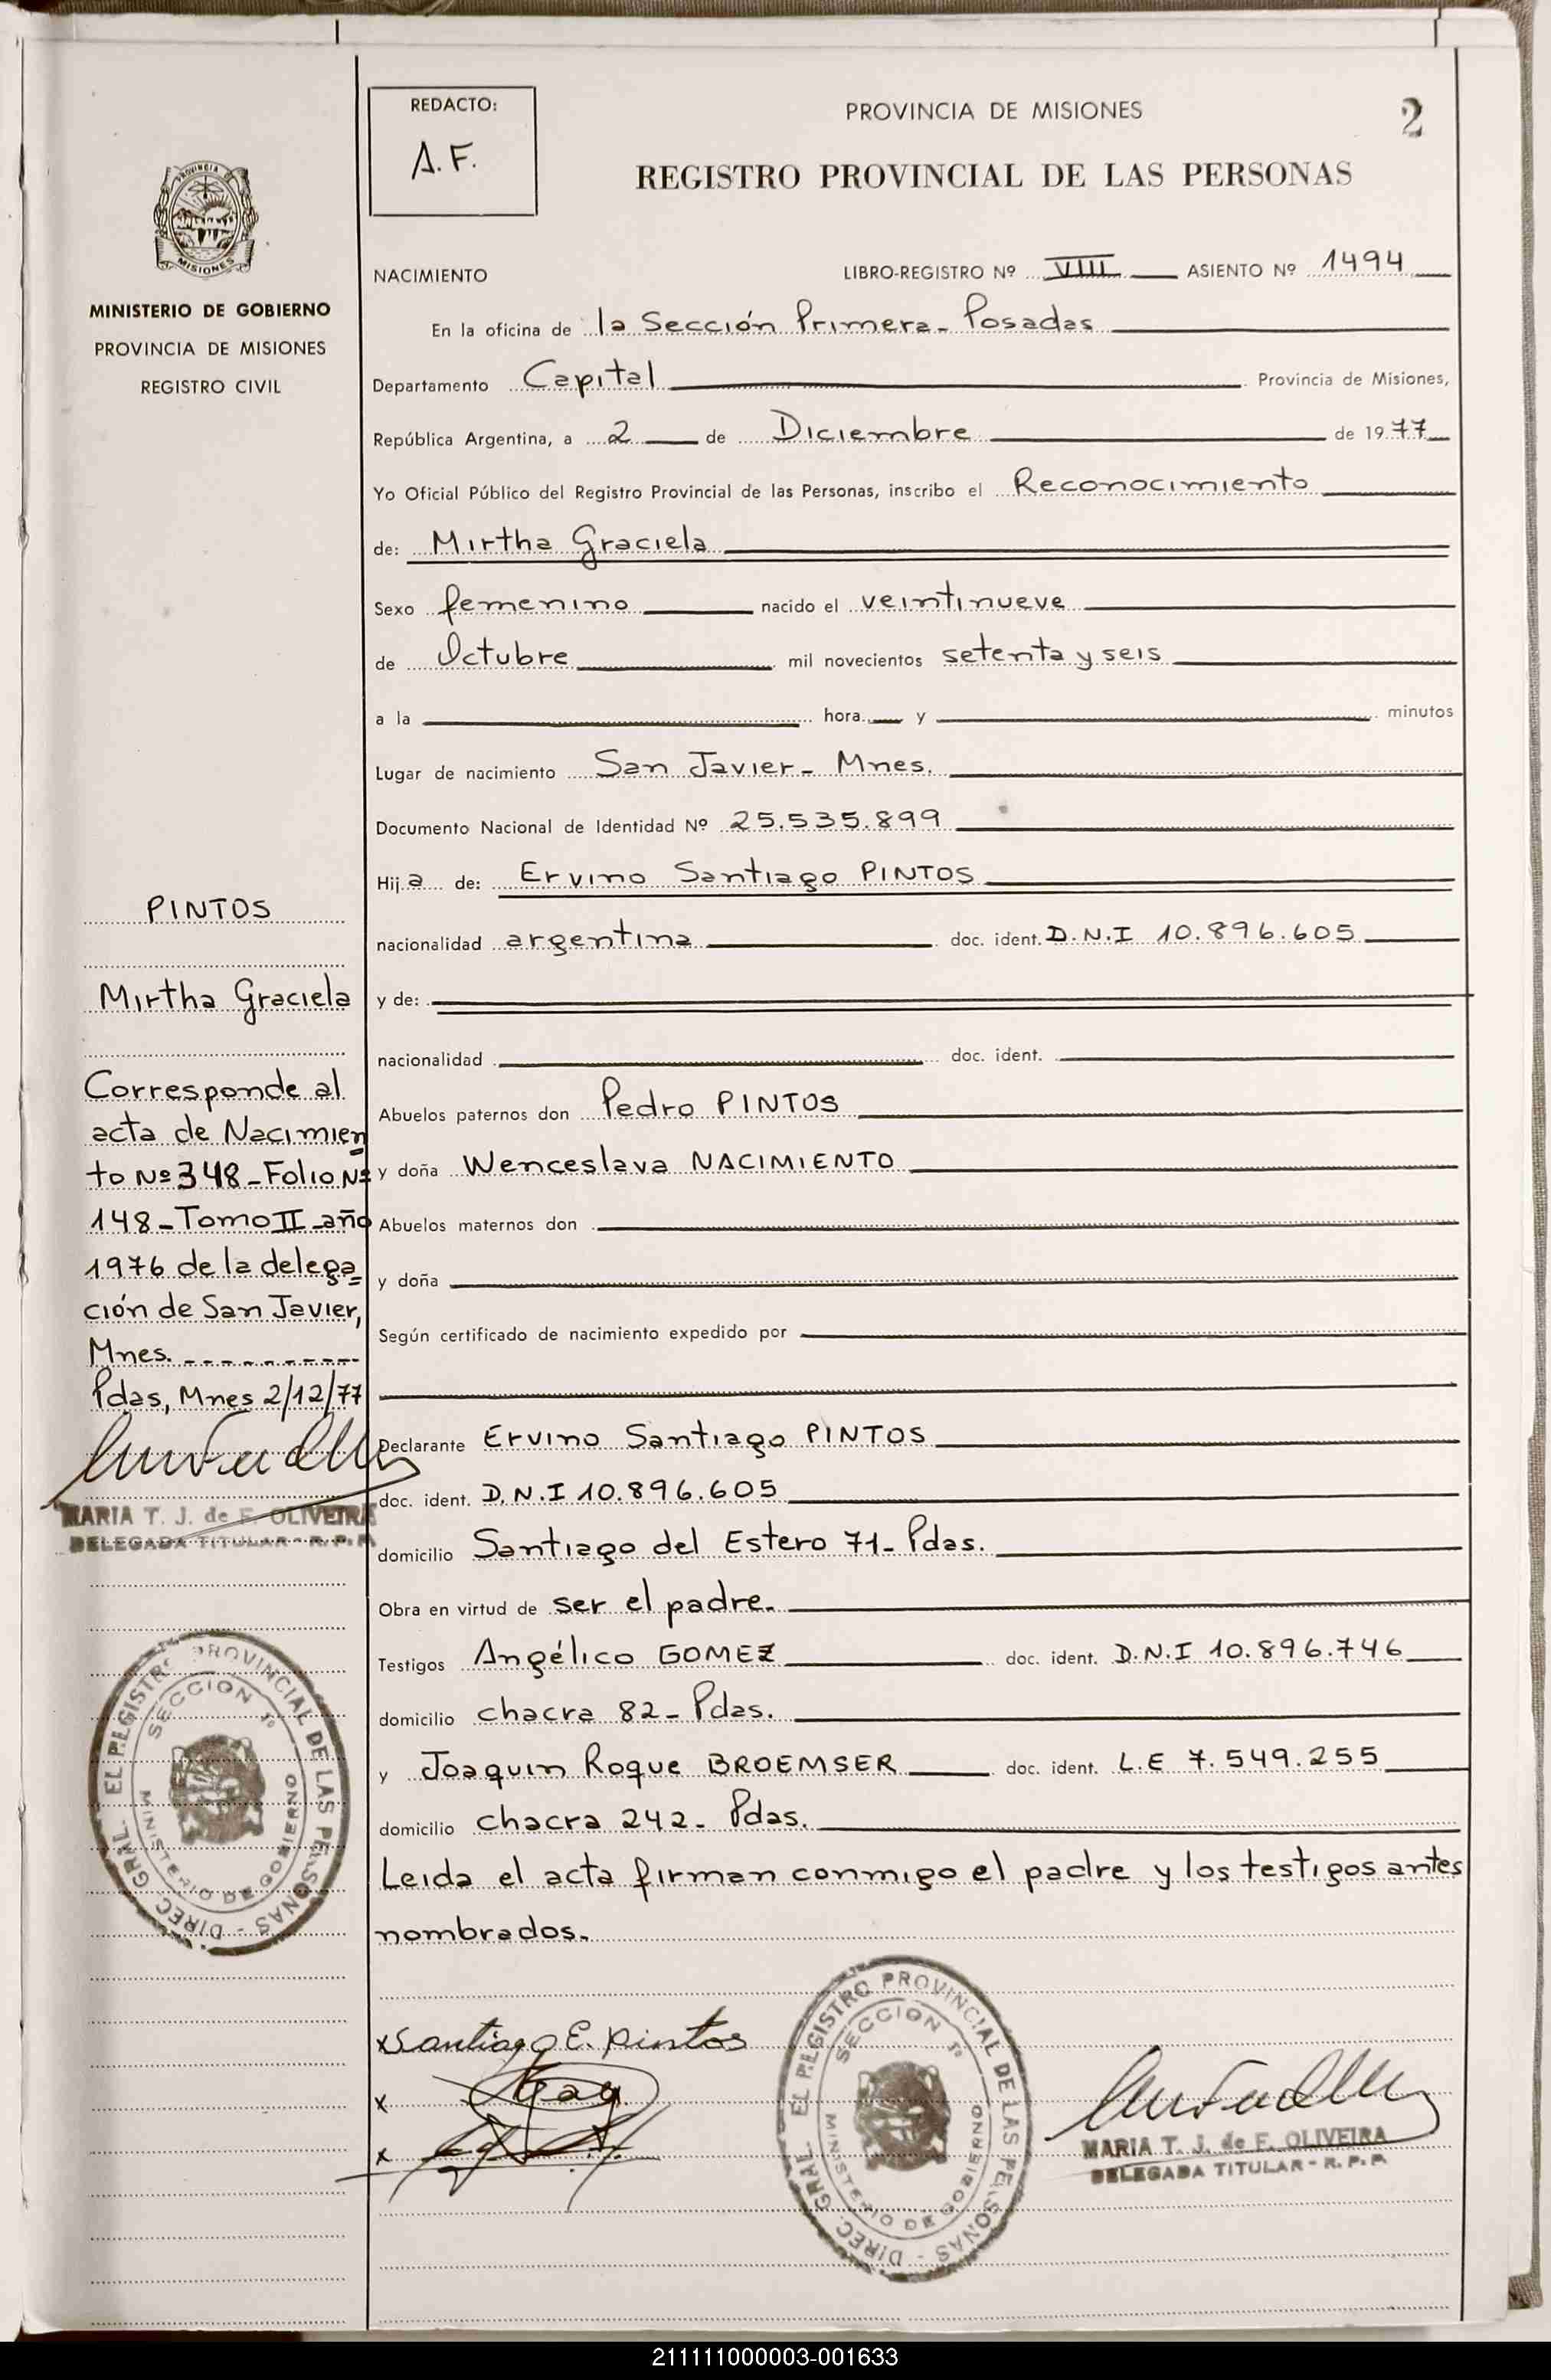 REDACTO:
A.F.
PROVINCIA DE MISIONES
2
REGISTRO PROVINCIAL DE LAS PERSONAS
PROVINCIA DE
MISIONES
MINISTERIO DE GOBIERNO
PROVINCIA DE MISIONES
REGISTRO CIVIL
NACIMIENTO LIBRO-REGISTRO Nº VIII ASIENTO Nº 1494
En la oficina de la Sección Primera- Posadas
Departamento Capital Provincia de Misiones,
República Argentina, a 2 de Diciembre de 1977
Yo Oficial Público del Registro Provincial de las Personas, inscribo el Reconocimiento
de: Mirtha Graciela
Sexo femenino nacido el veintinueve
de Octubre mil novecientos setenta y seis
a la hora y minutos
Lugar de nacimiento San Javier- Mnes.
Documento Nacional de Identidad Nº 25.535.899
Hija de: Ervino Santiago PINTOS
nacionalidad argentina doc. ident. D.N.I 10.896.605
y de:
nacionalidad doc. ident.
Abuelos paternos don Pedro PINTOS
y doña Wenceslava NACIMIENTO
Abuelos maternos don
y doña
Según certificado de nacimiento expedido por
Declarante Ervino Santiago PINTOS
doc. ident. D.N.I 10.896.605
domicilio Santiago del Estero 71- Pdas.
Obra en virtud de ser el padre.
Testigos Angélico GOMEZ doc. ident. D.N.I 10.896.746
domicilio chacra 82- Pdas.
y Joaquin Roque BROEMSER doc. ident. L.E 7.549.255
domicilio chacra 242- Pdas.
Leida el acta firman conmigo el padre y los testigos antes
nombrados.
PINTOS
Mirtha Graciela
Corresponde al
acta de Nacimien
to Nº 348-Folio Nº
148-Tomo II año
1976 de la delega
ción de San Javier,
Mnes.
Pdas, Mnes 2/12/77
MARIA T. J. de F. OLIVEIRA
DELEGADA TITULAR - R. P. P.
DIREC. GRAL. EL REGISTRO PROVINCIAL DE LAS PERSONAS
SECCION 1º
MINISTERIO DE GOBIERNO
x Santiago E. pintos
x
x
DIREC. GRAL. EL REGISTRO PROVINCIAL DE LAS PERSONAS
SECCION 1º
MINISTERIO DE GOBIERNO
MARIA T. J. de F. OLIVEIRA
DELEGADA TITULAR - R. P. P.
211111000003-001633